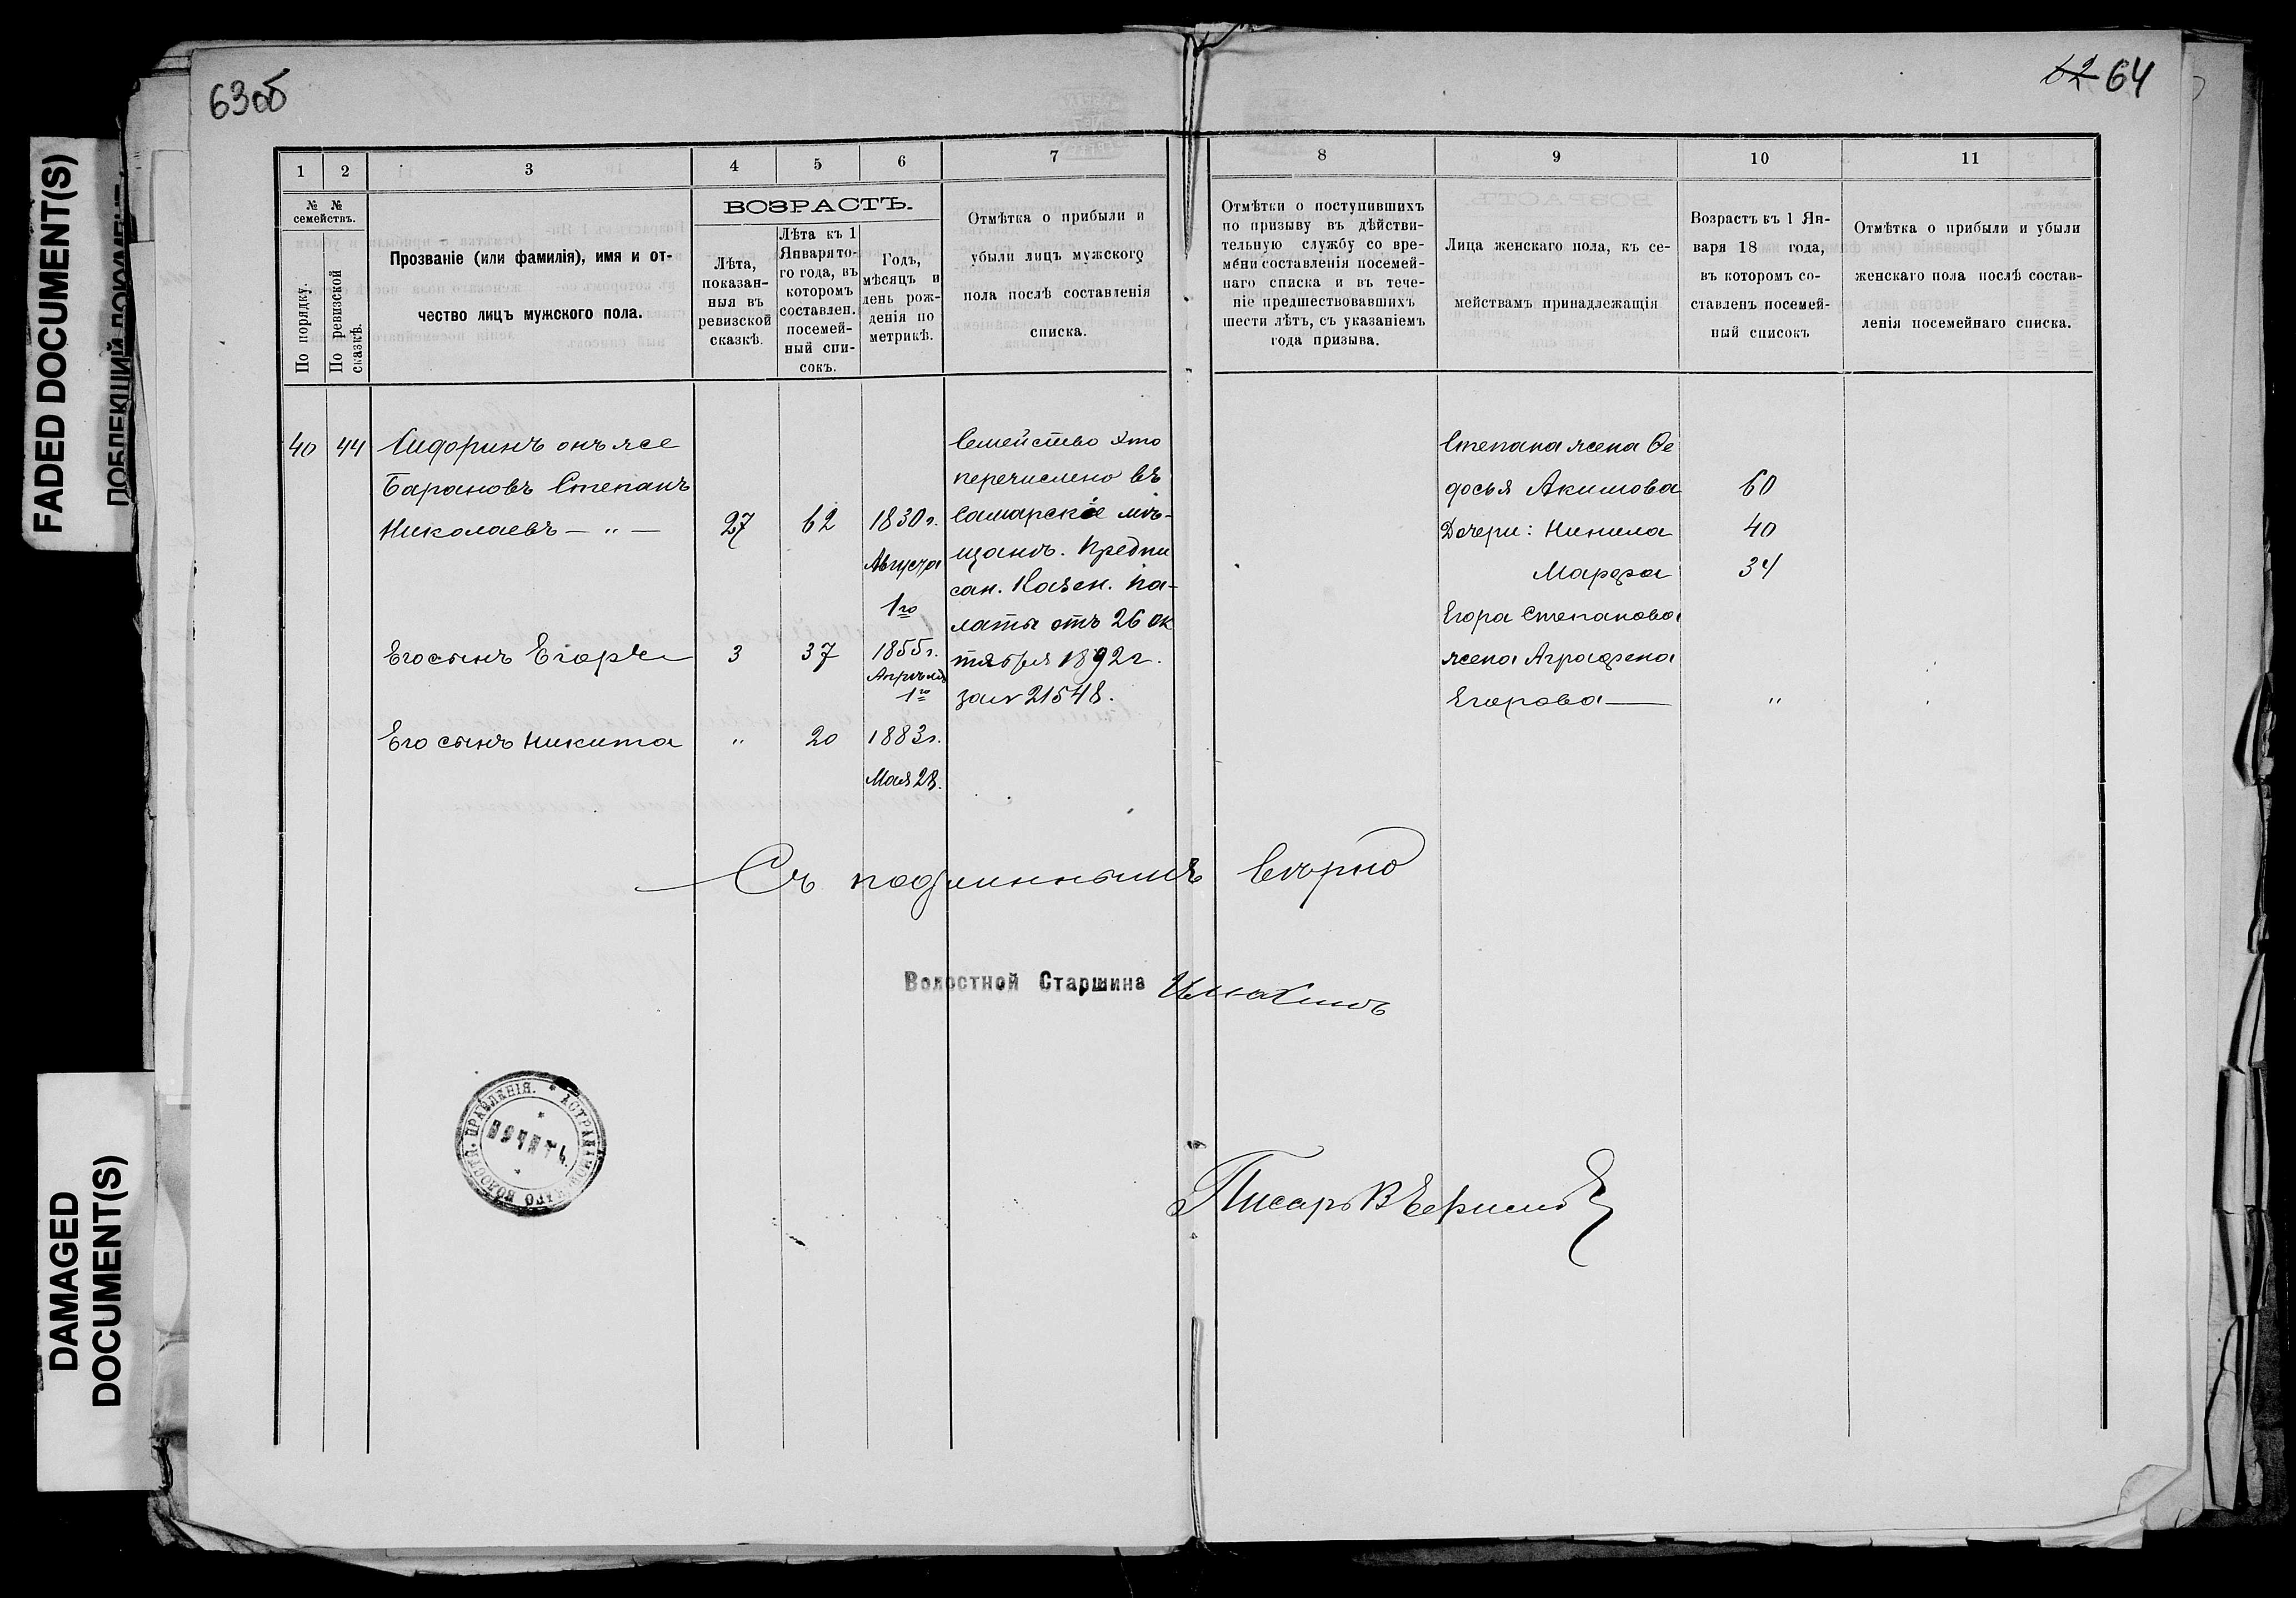 63об
62 64
FADED DOCUMENT(S)
DAMAGED
DOCUMENT(S)
1 2 3 4 5 6 7 8 9 10 11
№ № семействъ.
По порядку.
По ревизской сказкѣ.
Прозваніе (или фамилія), имя и от-
чество лицъ мужского пола.
ВОЗРАСТЪ.
Лѣта,
показан-
ныя въ
ревизской
сказкѣ.
Лѣта къ 1
Января то-
го года, въ
которомъ
составлен.
посемей-
ный спи-
сокъ.
Годъ,
мѣсяцъ и
день рож-
денія по
метрикѣ.
Отмѣтка о прибыли и
убыли лицъ мужского
пола послѣ составленія
списка.
Отмѣтки о поступившихъ
по призыву въ дѣйстви-
тельную службу со вре-
мени составленія посемей-
наго списка и въ тече-
ніе предшествовавшихъ
шести лѣтъ, съ указаніемъ
года призыва.
Лица женскаго пола, къ се-
мействамъ принадлежащія
Возрастъ къ 1 Ян-
варя 18 года,
въ которомъ со-
ставленъ посемей-
ный списокъ
Отмѣтка о прибыли и убыли
женскаго пола послѣ состав-
ленія посемейнаго списка.
40 44 Сидоринъ онъ же
Барановъ Степанъ
Николаевъ — " — 27 62 1830г.
Августа
1го
Его сынъ Егоръ 3 37 1855г.
Апрѣля
1го
Его сынъ Никита " 20 1883г.
Мая 28.
Семейство это
перечислено въ
Самарскіе мѣ-
щане. Предпи
сан. Казен. Па-
латы отъ 26 Ок
тября 1892г.
за № 21548.
Степана жена Ѳе
досья Акимова 60
Дочери: Ненила 40
Марфа 34
Егора Степанова
жена Аграфена
Егорова — "
Съ подлиннымъ вѣрно
Волостной Старшина
ПЕЧАТЬ
ВОЛОСТН. ПРАВЛЕНІЯ.
Писарь